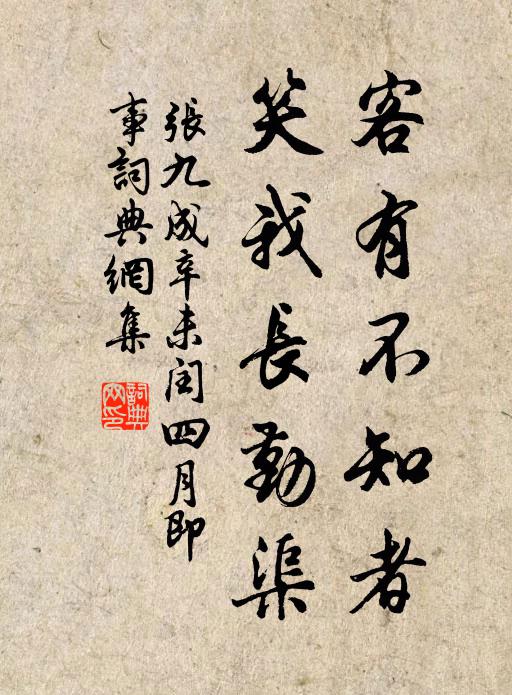 客有不知者
笑我長勤渠
張九成辛未閏四月即
事詞典網集
詞典
网印